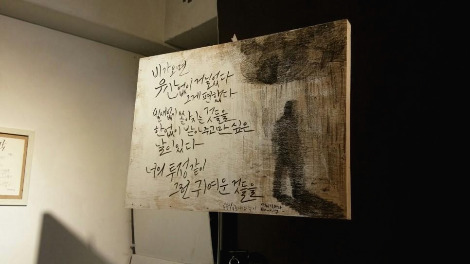 비가오면
우산없이 거닐었다
그게 편했다
쏟아지는 것들을
한없이 받아주고만 싶은
날이 있다
너의 투정같이
그런 귀여운 것들을